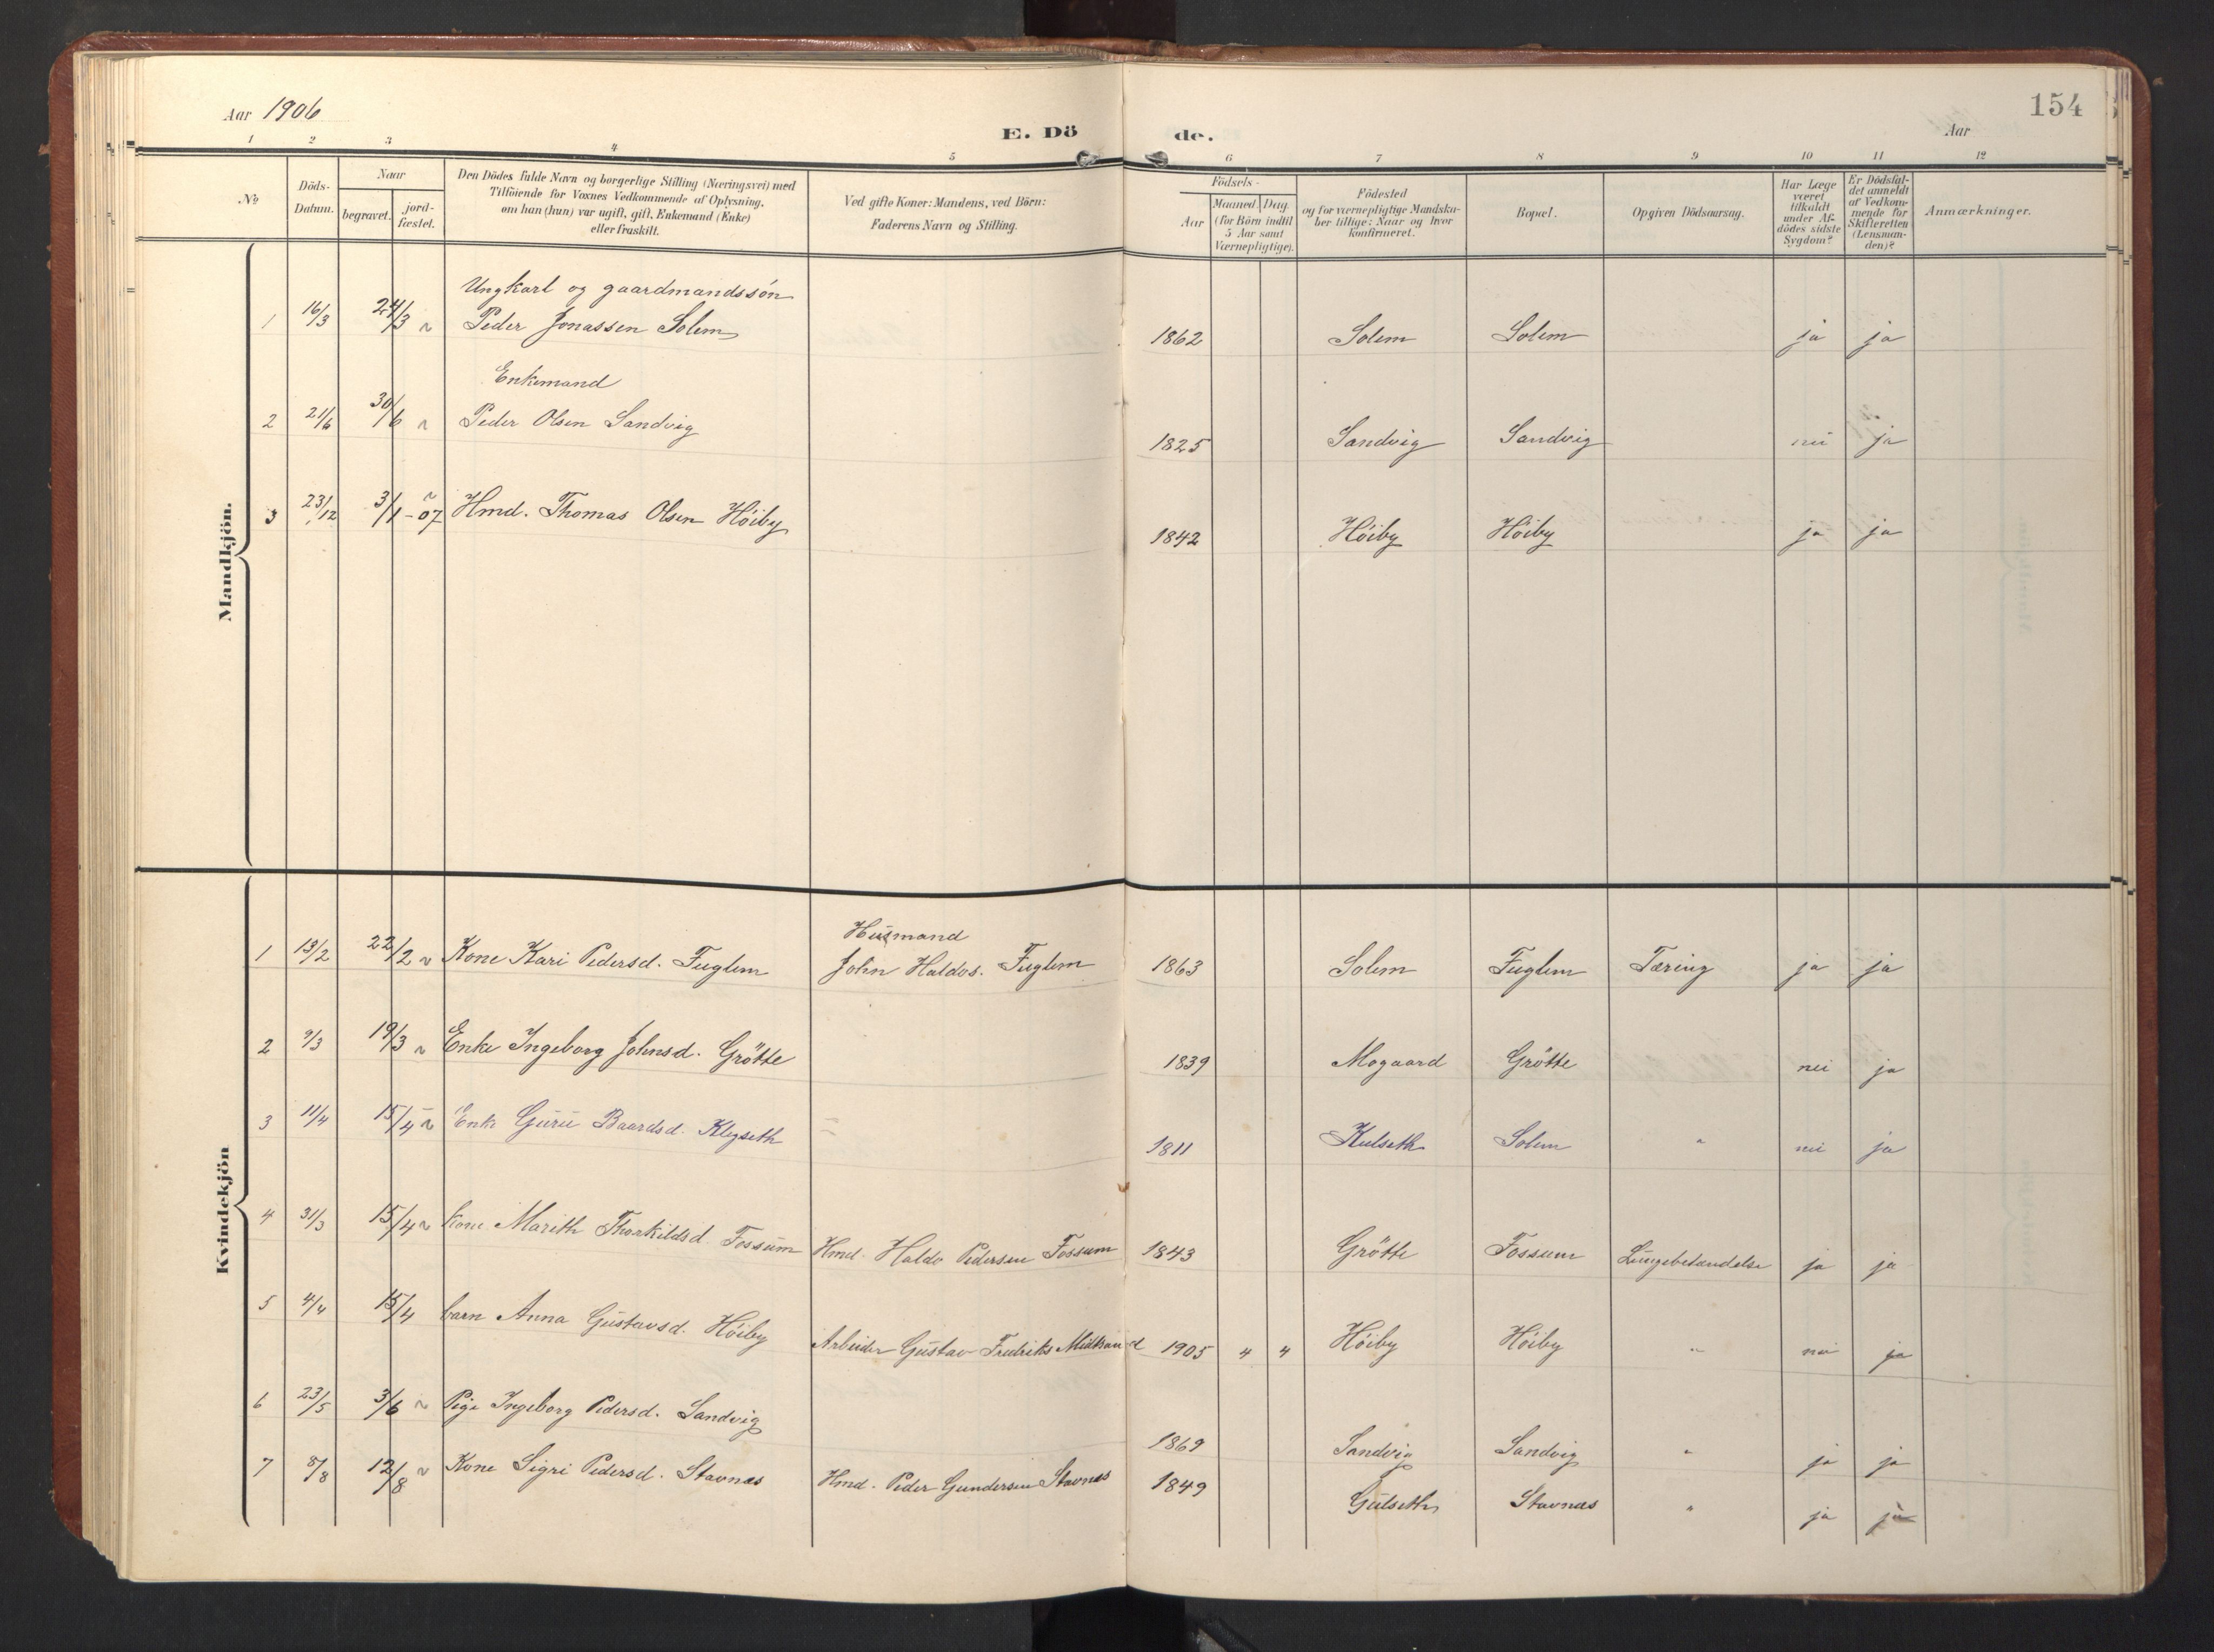 Aar 1906
E. Dö de.
Aar
154
1 2 3 4 5 6 7 8 9 10 11 12
No
Döds-
Datum.
Naar
begravet.
jord-
fæstet.
Den Dödes fulde Navn og borgerlige Stilling (Næringsvei) med
Tilföiende for Voxnes Vedkommende af Oplysning,
om han (hun) var ugift, gift, Enkemand (Enke)
eller fraskilt.
Ved gifte Koner: Mandens, ved Börn:
Faderens Navn og Stilling.
Födsels-
Aar
Maaned. Dag.
(for Börn indtil
5 Aar samt
Værnepligtige).
Födested
og for værnepligtige Mandska-
ber tillige: Naar og hvor
konfirmeret.
Bopæl.
Opgiven Dödsaarsag.
Har Læge
været
tilkaldt
under Af-
dödes sidste
Sygdom?
Er Dödsfal-
det anmeldt
af Vedkom-
mende for
Skifteretten
(Lensman-
den)?
Anmærkninger.
Mandkjön.
Ungkarl og gaardmandssön
1 16/3 24/3 ~ Peder Jonassen Solem 1862 Solem Solem ja ja
Enkemand
2 21/6 30/6 ~ Peder Olsen Sandvig 1825 Sandvig Sandvig nei ja
3 23/12 3/1-07 ~ Hmd. Thomas Olsen Höiby 1842 Höiby Höiby ja ja
Kvindekjön
Husmand
1 13/2 22/2 ~ Kone Kari Pedersd. Fuglem John Haldos. Fuglem 1863 Solem Fuglem Tæring ja ja
2 9/3 19/3 ~ Enke Ingeborg Johnsd. Grötte 1839 Mogaard Grötte nei ja
3 11/4 15/4 ~ Enke Guru Baardsd. Klegseth 1811 Kulseth Solem " nei ja
4 31/3 15/4 ~ Kone Marith Thorkildsd Fossum Hmd. Haldo Pedersen Fossum 1843 Grötte Fossum Lungebetændelse ja ja
5 4/4 15/4 barn Anna Gustavsd. Höiby Arbeider Gustav Fredriks Midtsand 1905 4 4 Höiby Höiby " nei ja
6 23/5 3/6 ~ Pige Ingeborg Pedersd. Sandvig 1869 Sandvig Sandvig " ja ja
7 8/8 12/8 ~ Kone Sigri Pedersd. Stavnes Hmd. Peder Gundersen Stavnes 1849 Gulseth Stavnæs " ja ja